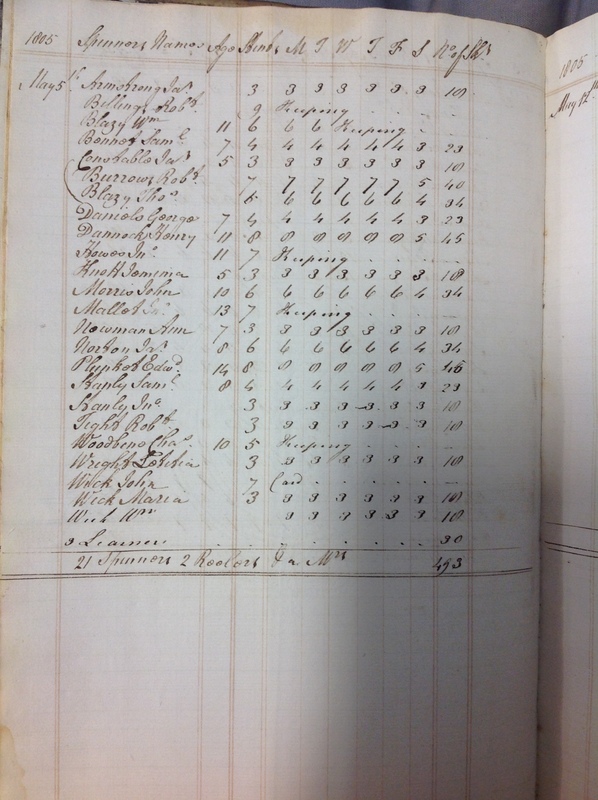 1805 Spinners Names Age Stints M T W T F S No of Sks
May 5th Armstrong Jas 3 3 3 3 3 3 3 18
Billings Robt 9 Keeping
Blazy Wm 11 6 6 6 Keeping
Bennet Saml 7 4 4 4 4 4 4 3 23
Constable Jas 5 3 3 3 3 3 3 3 18
Burrows Robt 7 7 7 7 7 7 5 40
Blazy Thos 6 6 6 6 6 6 4 34
Daniels George 7 4 4 4 4 4 4 3 23
Dannock Henry 11 8 8 8 8 8 8 5 45
Howes Jno 11 7 Keeping
Knott Jemima 5 3 3 3 3 3 3 3 18
Morris John 10 6 6 6 6 6 6 4 34
Mallet 13 7 Keeping
Newman Ann 7 3 3 3 3 3 3 3 18
Norton Jas 8 6 6 6 6 6 6 4 34
Edwd 14 8 8 8 8 8 8 5 45
Stanly Saml 8 4 4 4 4 4 4 3 23
Stanly Jno 3 3 3 3 3 3 3 18
Tight Robt 3 3 3 3 3 3 3 18
Woodbine Chas 10 5 Keeping —
Wright Letitia 3 3 3 3 3 3 3 18
Wick John 7 Card —
Wick Maria 3 3 3 3 3 3 3 18
Wick Wm 3 3 3 3 3 3 18
3 Learners 30
21 Spinners 2 Reelers & a Mrs 493
1805
May 12th